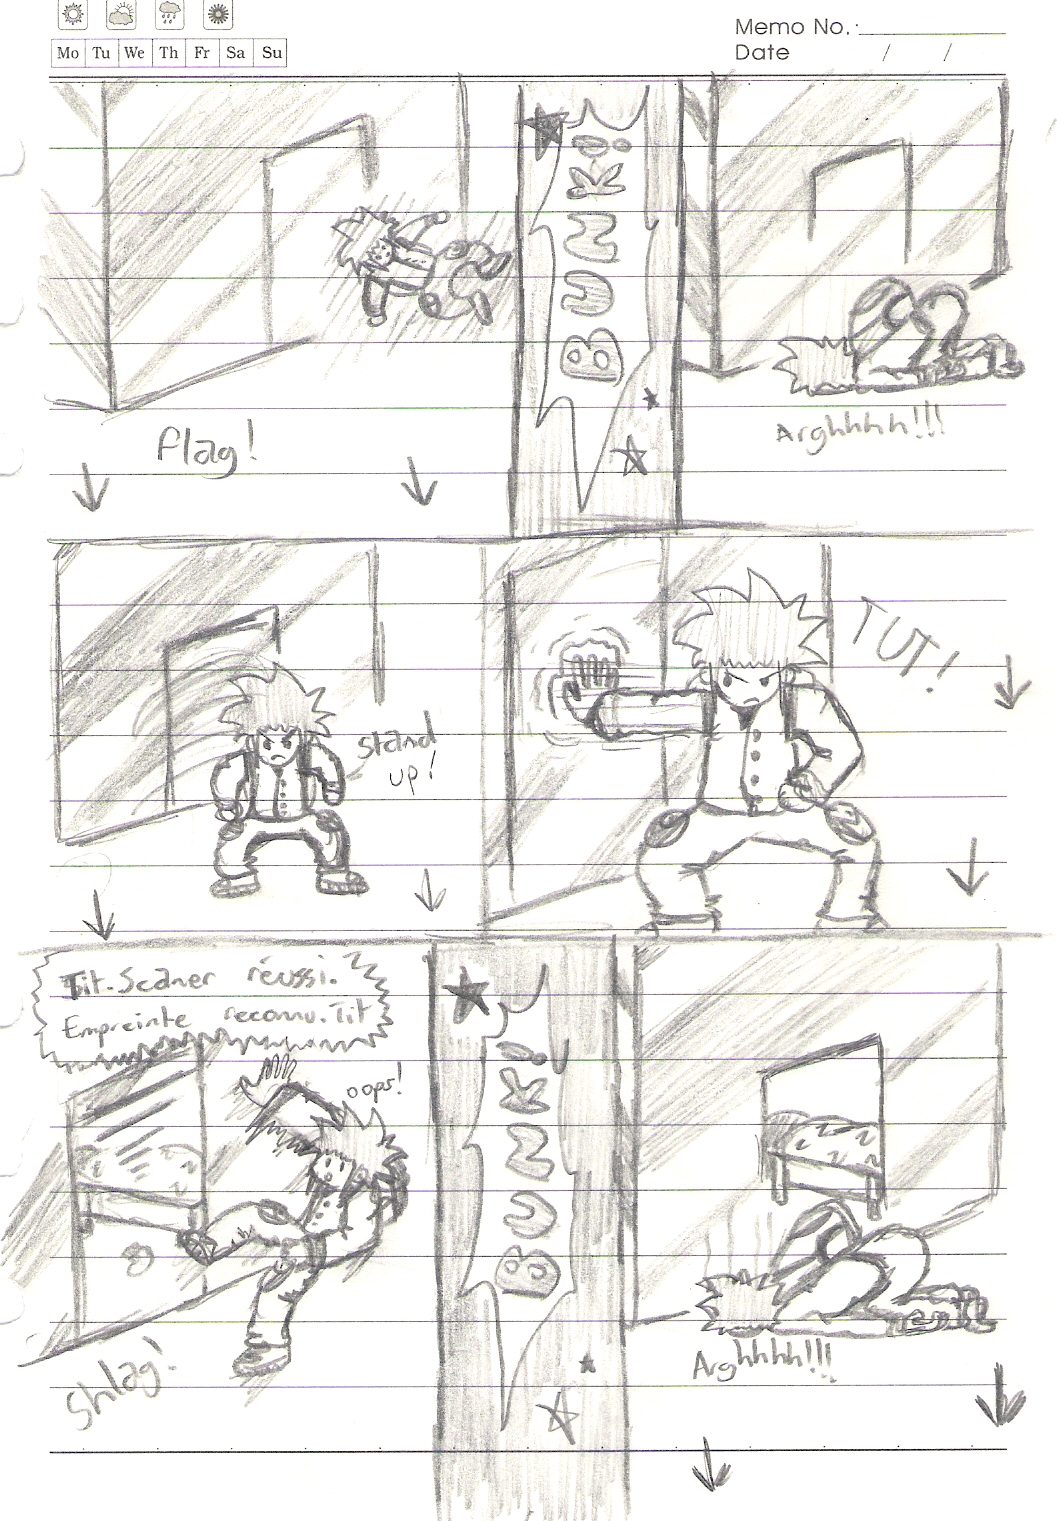 Memo No.
Mo Tu We Th Fr Sa Su
Date / /
flag!
BUNK!
Arghhhh!!!
stand
up!
TUT!
Tit.Scaner réussi.
Empreinte reconnu.Tit
oops!
Shlag!
BUNK!
Arghhhh!!!